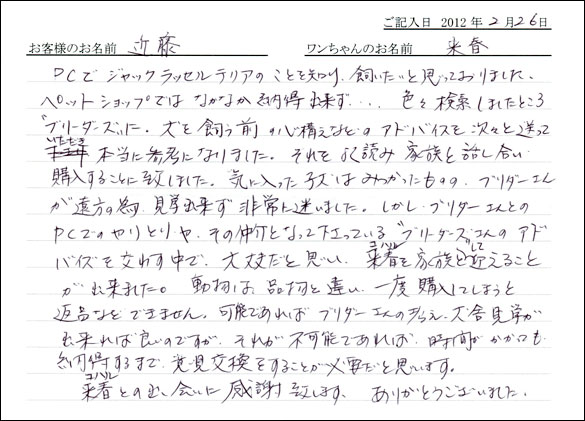 ご記入日 2012 年 2 月 26 日
お客様のお名前 近藤 ワンちゃんのお名前 来春
PCでジャックラッセルテリアのことを知り、飼いたいと思っておりました。
ペットショップではなかなか納得出来ず... 色々検索しましたところ
"ブリーダーズ"に。犬を飼う前の心構えなどのアドバイスを次々と送って
いただき 本当に参考になりました。それをよく読み 家族と話し合い
購入することに致しました。気に入った子犬はみつかったものの、ブリダーさん
が遠方の為、見学出来ず 非常に迷いました。しかし、ブリダーさんとの
PCでのやりとりや、その仲介となって下さっている"ブリーダーズさんのアド
バイスを交わす中で、大丈夫だと思い、来春を家族として迎えること
コハル
が出来ました。 動物は 品物と違い 一度 購入してしまうと
返品などできません。可能であれば ブリダーさんの考え、犬舎見学が
出来れば良いのですが、それが不可能であれば、時間がかかっても
納得するまで、意見交換をすることが必要だと思います。
コハル
来春との出会いに感謝致します。 ありがとうございました。